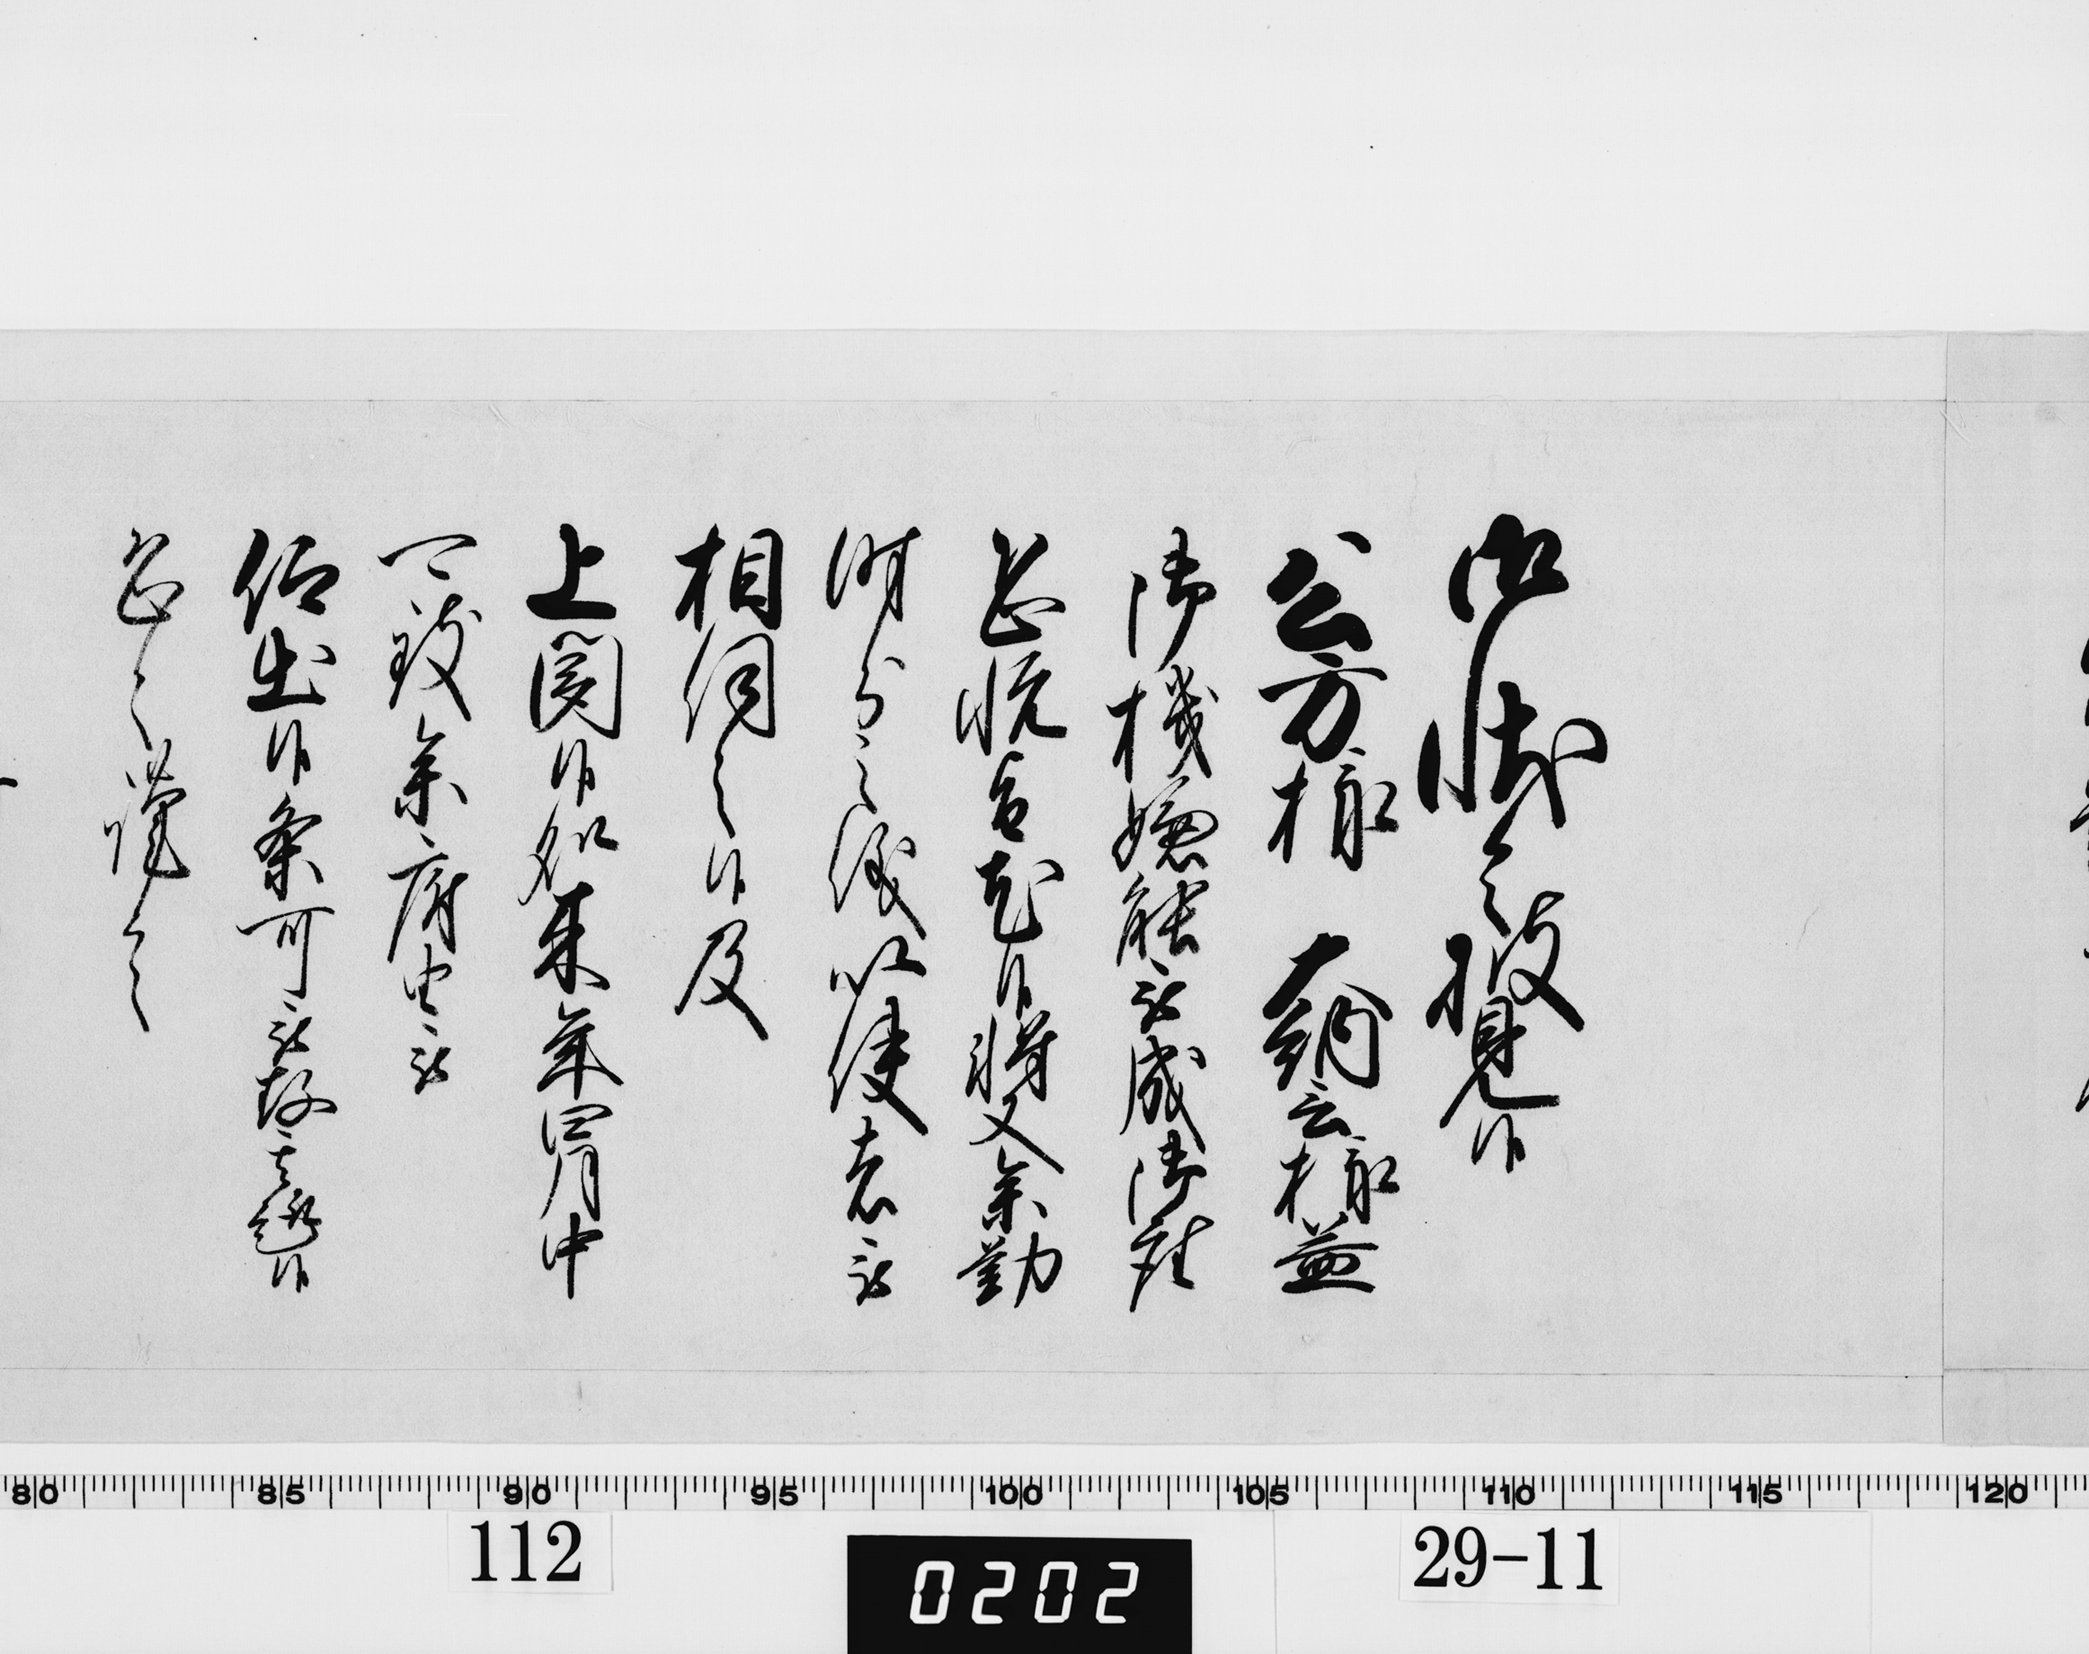 御状令披見候
公方様 大納言様益
御機嫌能被成御座
恐悦旨尤候将又参勤
時分之儀以使者被
相伺之候及
上聞候処来年四月中
可致参府由被
仰出候条可被存其趣候
恐々謹言
80 85 90 95 100 105 110 115 120
112
0202
29-11